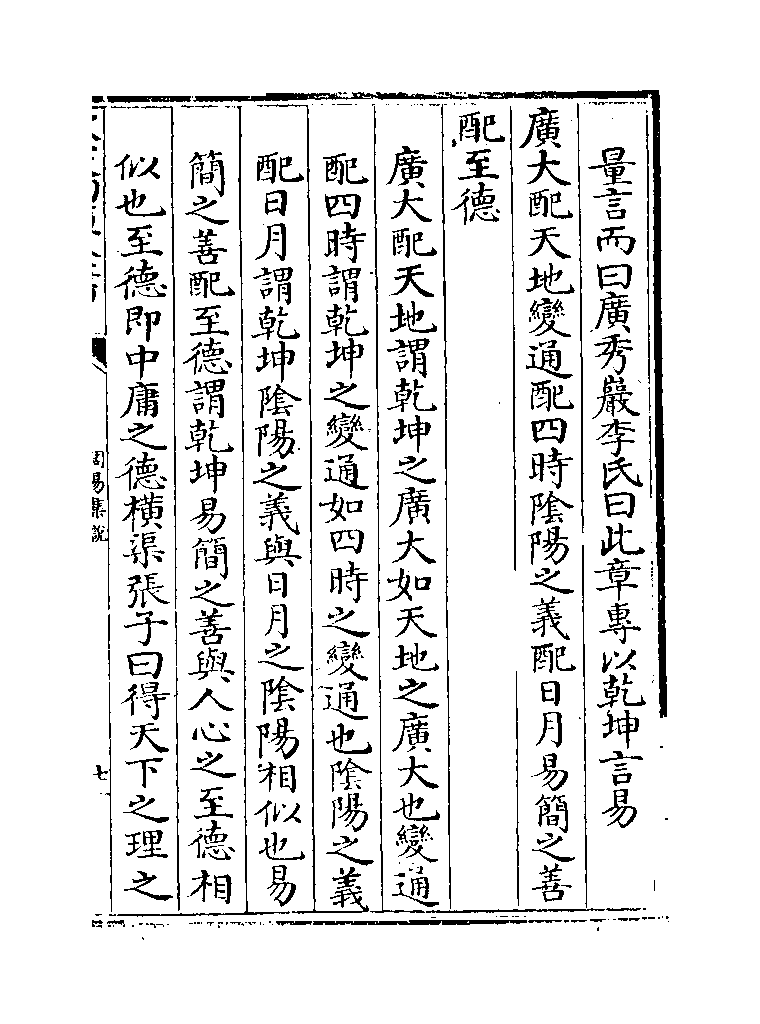 量言而曰廣秀巖李氏曰此章專以乾坤言易
廣大配天地變通配四時陰陽之義配日月易簡之善
配至德
廣大配天地謂乾坤之廣大如天地之廣大也變通
配四時謂乾坤之變通如四時之變通也陰陽之義
配日月謂乾坤陰陽之義與日月之陰陽相似也易
簡之善配至德謂乾坤易簡之善與人心之至德相
似也至德即中庸之德橫渠張子曰得天下之理之
周易集說
七